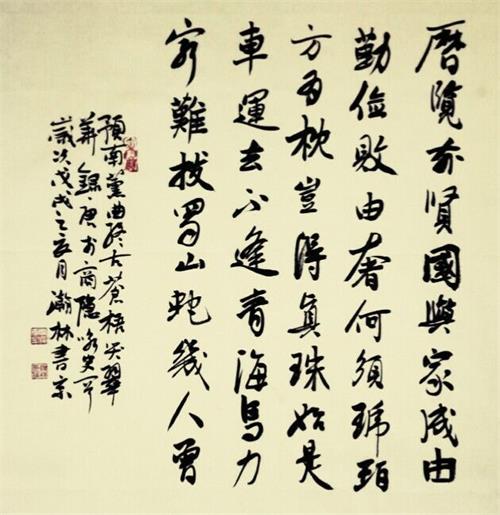 曆覽前賢國與家成由
勤儉敗由奢何須琥珀
方為枕豈得真珠始是
車運去不逢青海馬力
窮難拔蜀山蛇幾人曾
預南薰曲終古蒼梧哭翠
華錄唐李商隱咏史一首
歲次戊戌之亥月瀚林書京